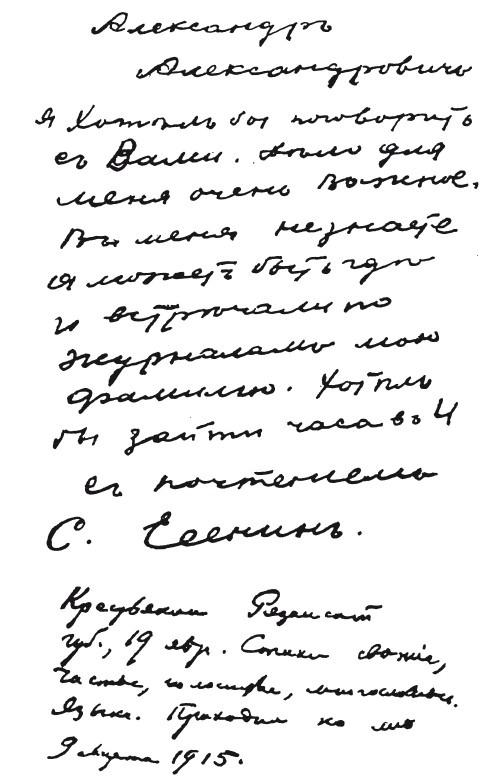 Александръ
Александровичъ
Я Хотѣлъ бы поговорить
съ Вами. Дѣло для
меня очень важное.
Вы меня незнаете
а можетъ быть гдѣ
и встрѣчали по
журналамъ мою
фамилию. Хотѣлъ
бы зайти часа въ 4
съ почтениемъ
С. Есенинъ.
Крестьянин Рязанской
губ., 19 лет. Стихи свѣжіе,
чистые, голосистые, многословные.
Язык. Приходил ко мнѣ
9 марта 1915.